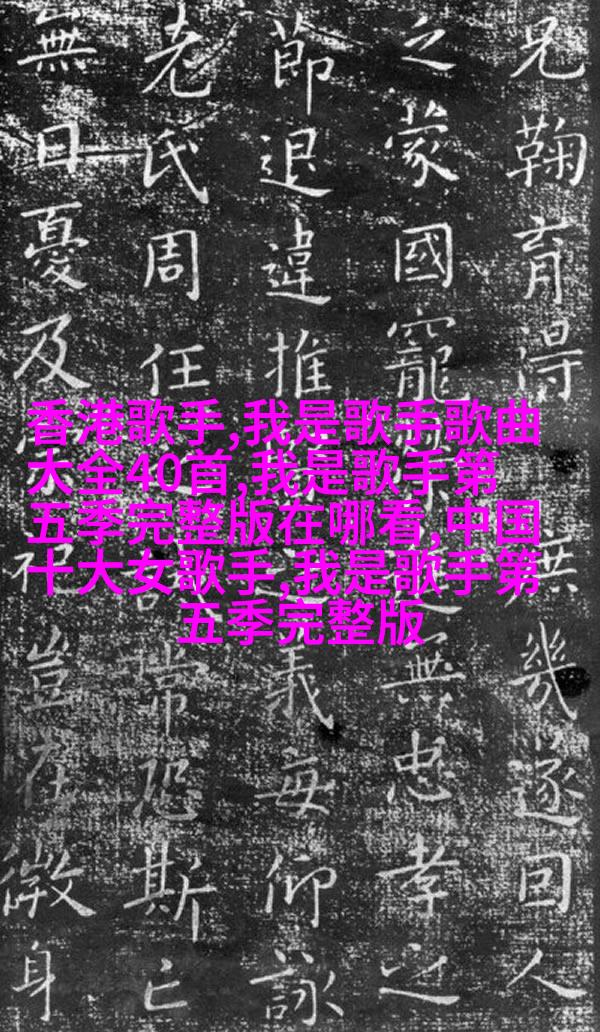 兄鞠育得幾遂回人
之蒙國寵無忠孝之
節退違推義每仰詠
老氏周任常恐斯亡
無日憂及祀豈在微身
香港歌手,我是歌手歌曲
大全40首,我是歌手第
五季完整版在哪看,中国
十大女歌手,我是歌手第
五季完整版